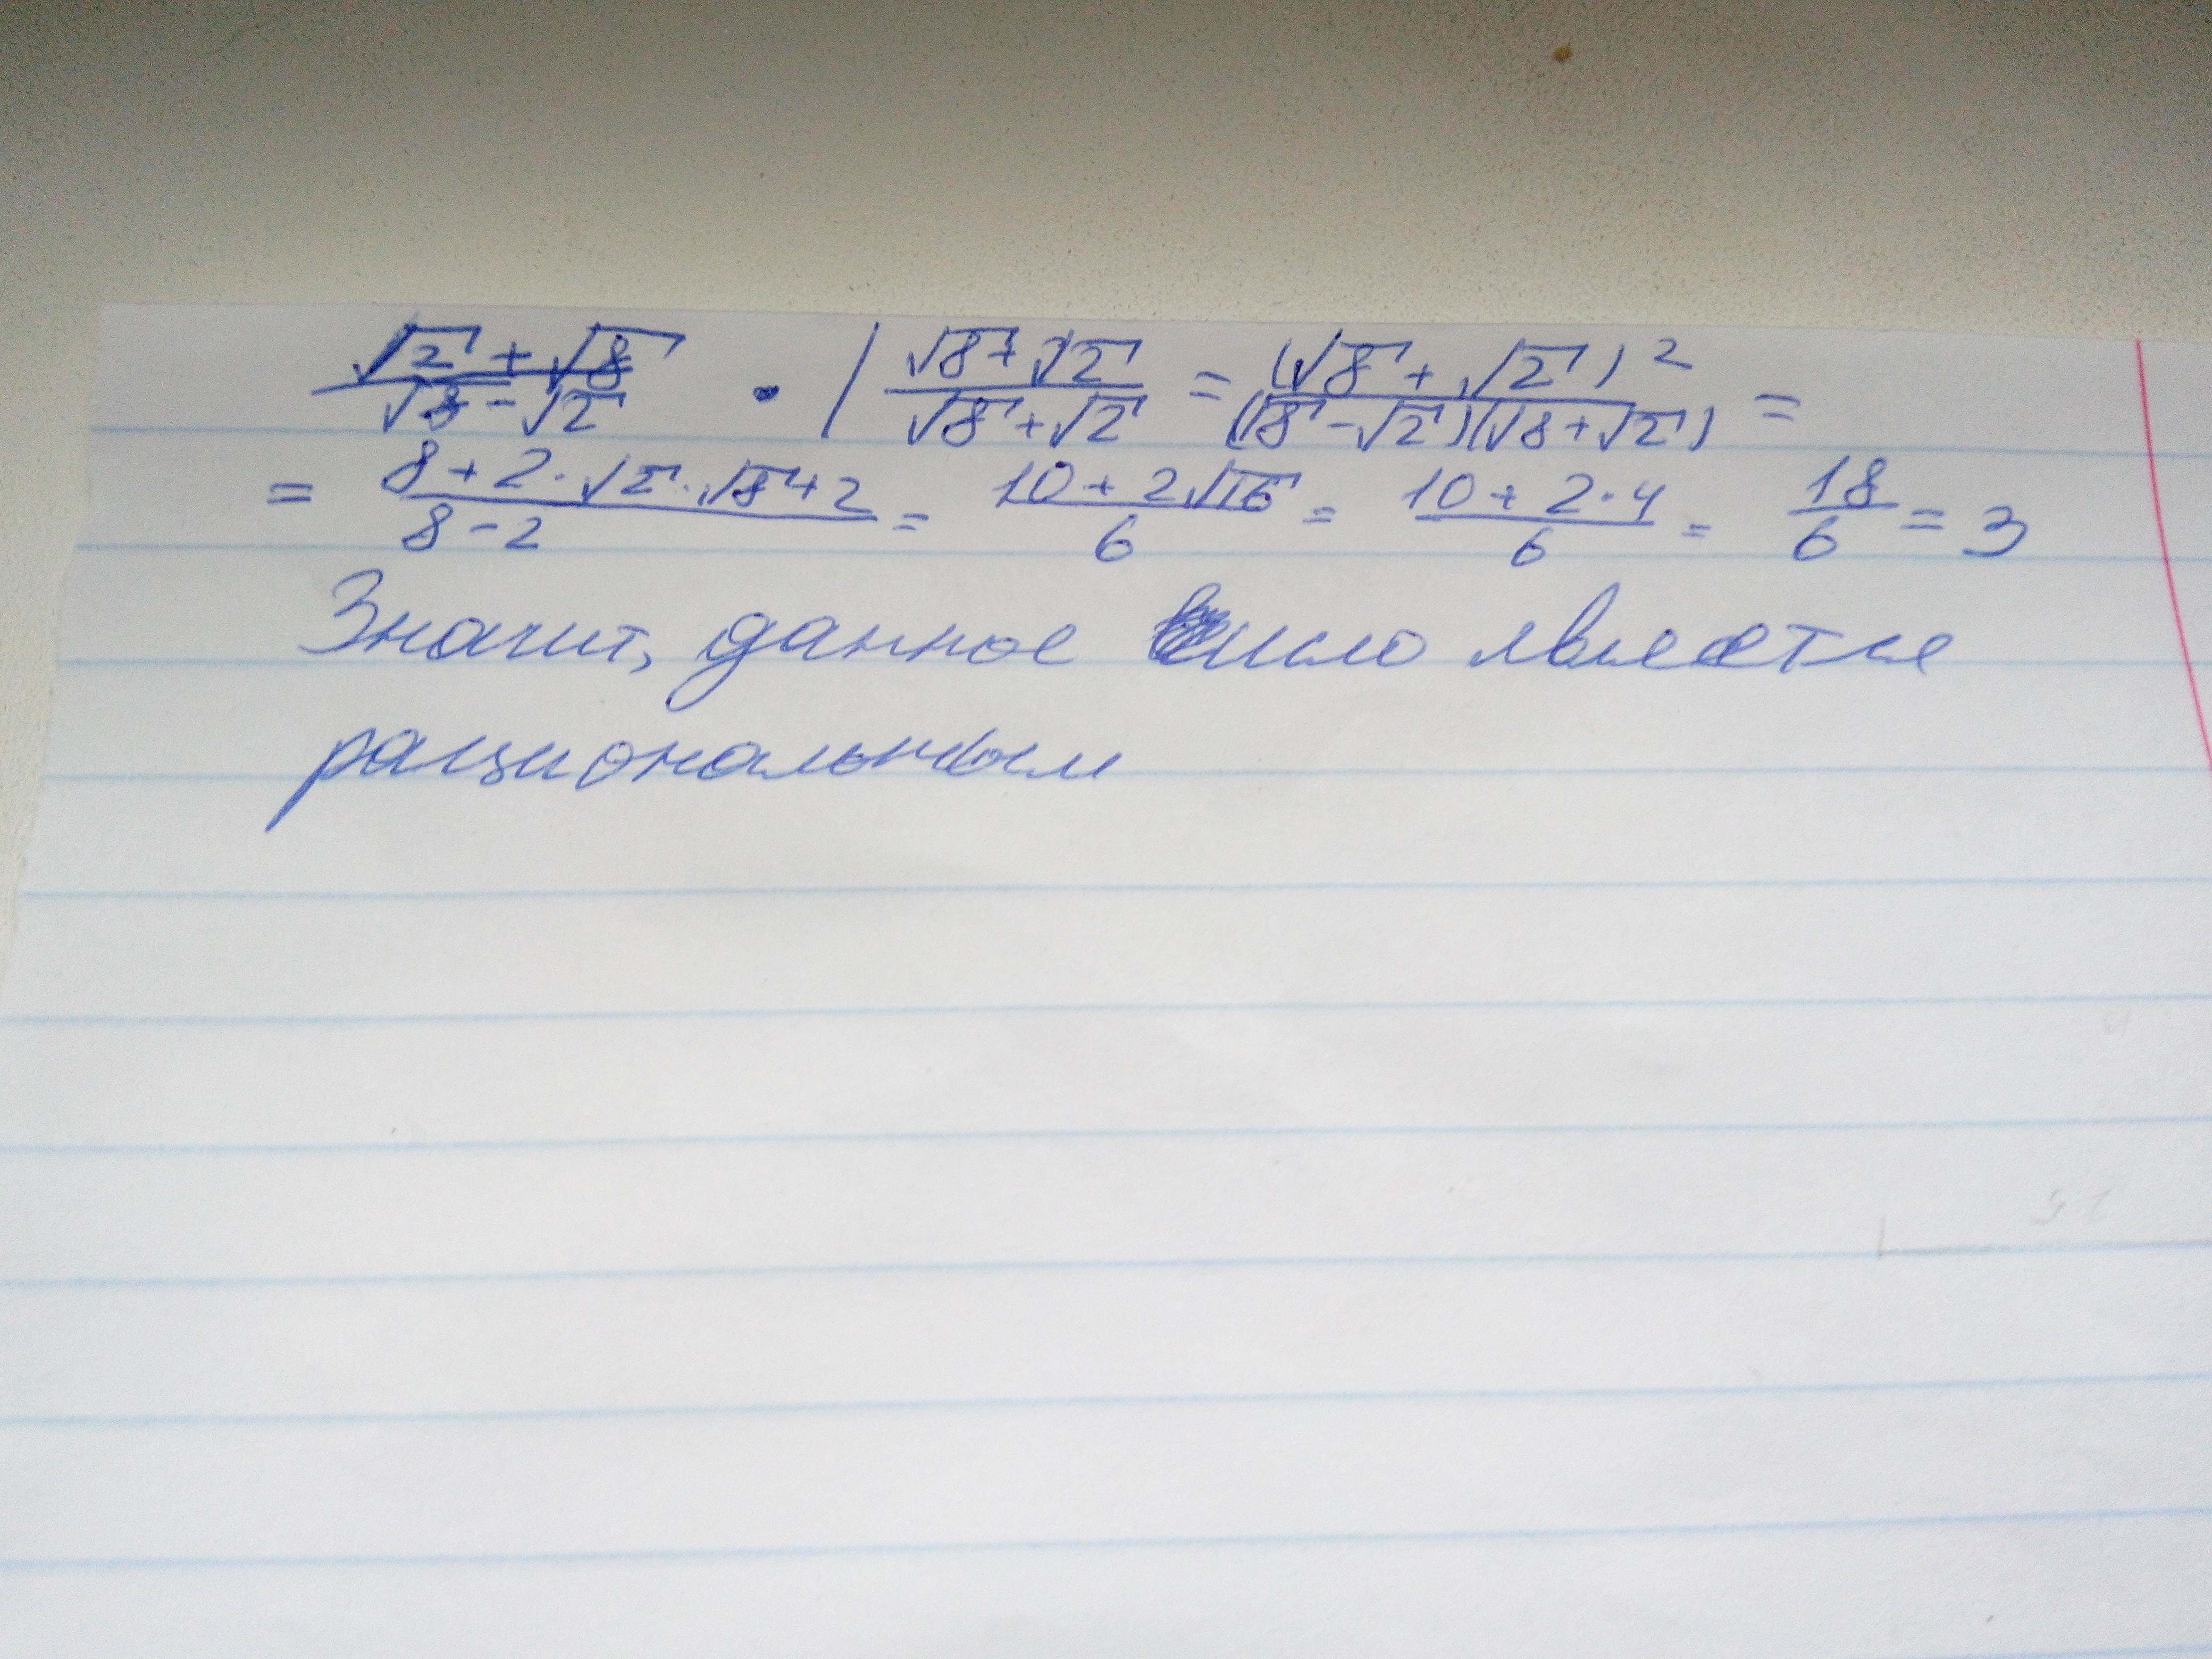 (√2 + √8)/(√8 - √2) · | (√8 + √2)/(√8 + √2) = (√8 + √2)²/((√8 - √2)(√8 + √2)) =
= (8 + 2 · √2 · √8 + 2)/(8 - 2) = (10 + 2√16)/6 = (10 + 2 · 4)/6 = 18/6 = 3
Значит, данное число является
рациональным